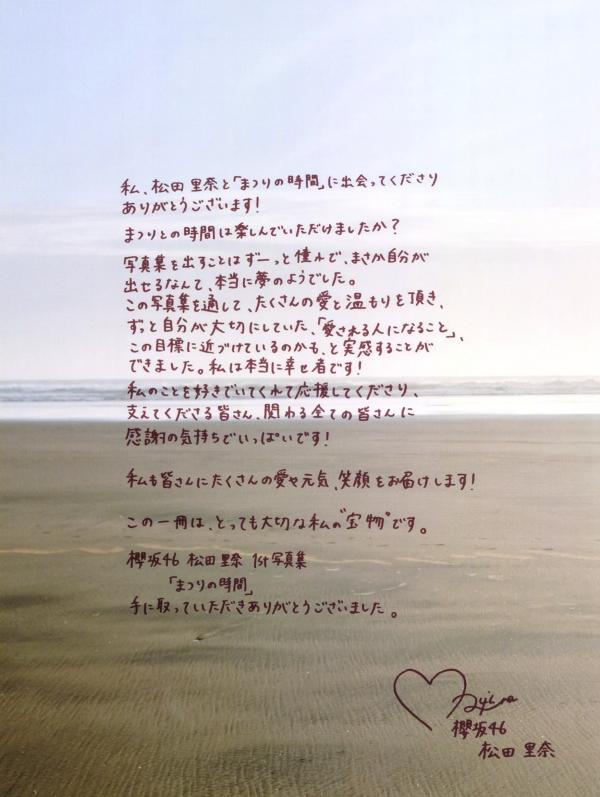 私、松田里奈と「まつりの時間」に出会ってくださり
ありがとうございます!
まつりとの時間は楽しんでいただけましたか?
写真集を出すことはずーっと憧れで、まさか自分が
出せるなんて、本当に夢のようでした。
この写真集を通して、たくさんの愛と温もりを頂き、
ずっと自分が大切にしていた、「愛される人になること」、
この目標に近づけているのかも、と実感することが
できました。私は本当に幸せ者です!
私のことを好きでいてくれて応援してくださり、
支えてくださる皆さん、関わる全ての皆さんに
感謝の気持ちでいっぱいです!
私も皆さんにたくさんの愛や元気、笑顔をお届けします!
この一冊は、とっても大切な私の"宝物"です。
櫻坂46 松田里奈 1st写真集
「まつりの時間」
手に取っていただきありがとうございました。
櫻坂46
松田里奈